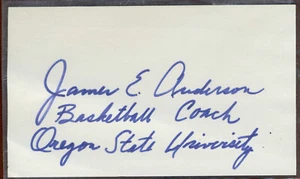 James E. Anderson
Basketball Coach
Oregon State University